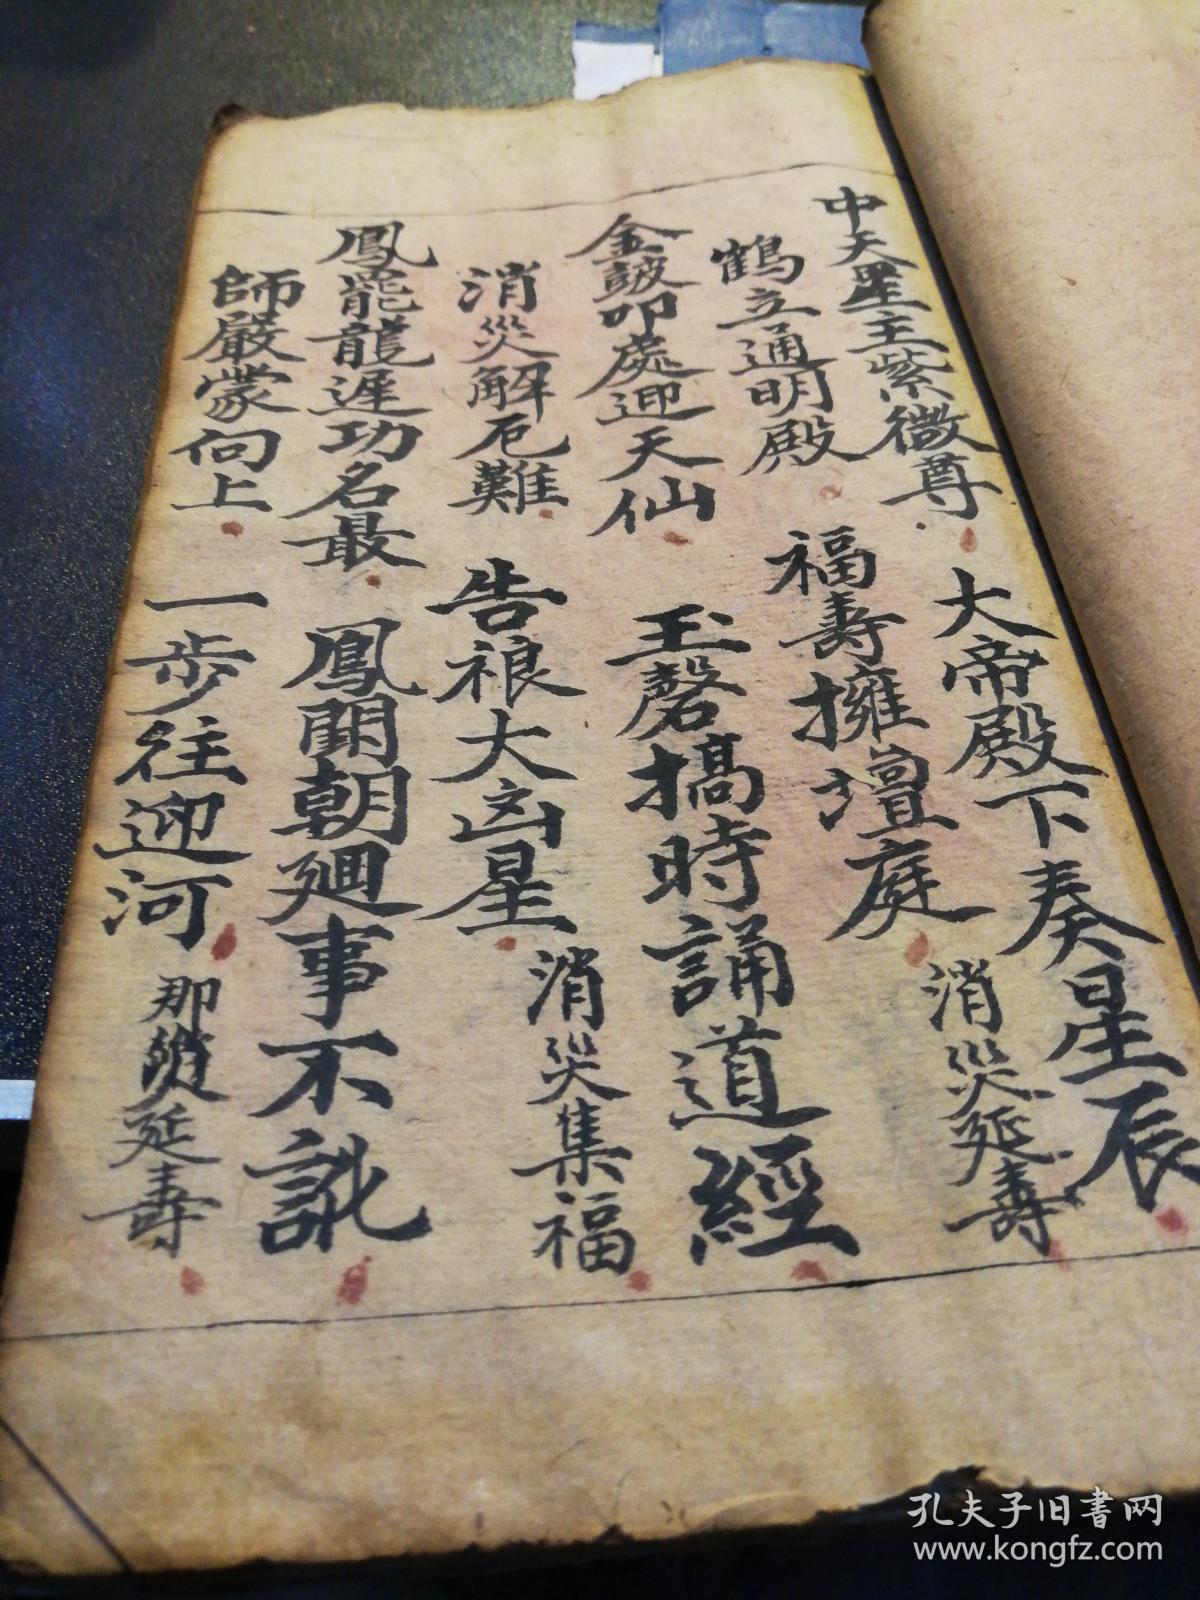 中天星主紫微尊 大帝殿下奏星辰
鶴立通明殿 福壽擁壇庭 消災延壽
金鼓叩處迎天仙 玉磬搞時誦道經
消災解厄難 告禳大凶星 消災集福
鳳 龍遲功名最 鳳閣朝廻事不訛
師嚴蒙向上 一步往迎河 那 延壽
孔夫子旧书网
www.kongfz.com